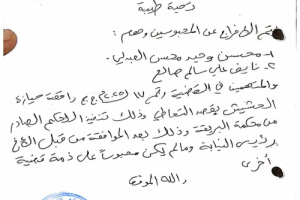 تحية طيبة
يتم الإفراج عن المحبوسين وهم :
١- محسن وحيد محسن العبدلي .
٢- نايف علي سالم صالح
والمتهمين في القضية رقم ١٧ ج.ج واقعة حيازة
الحشيش بقصد التعاطي وذلك تنفيذ للحكم الصادر
من محكمة البريقة وذلك بعد الموافقة من قبل
رئيس النيابة ومالم يكن محبوساً على ذمة قضية
أخرى
والله الموفق